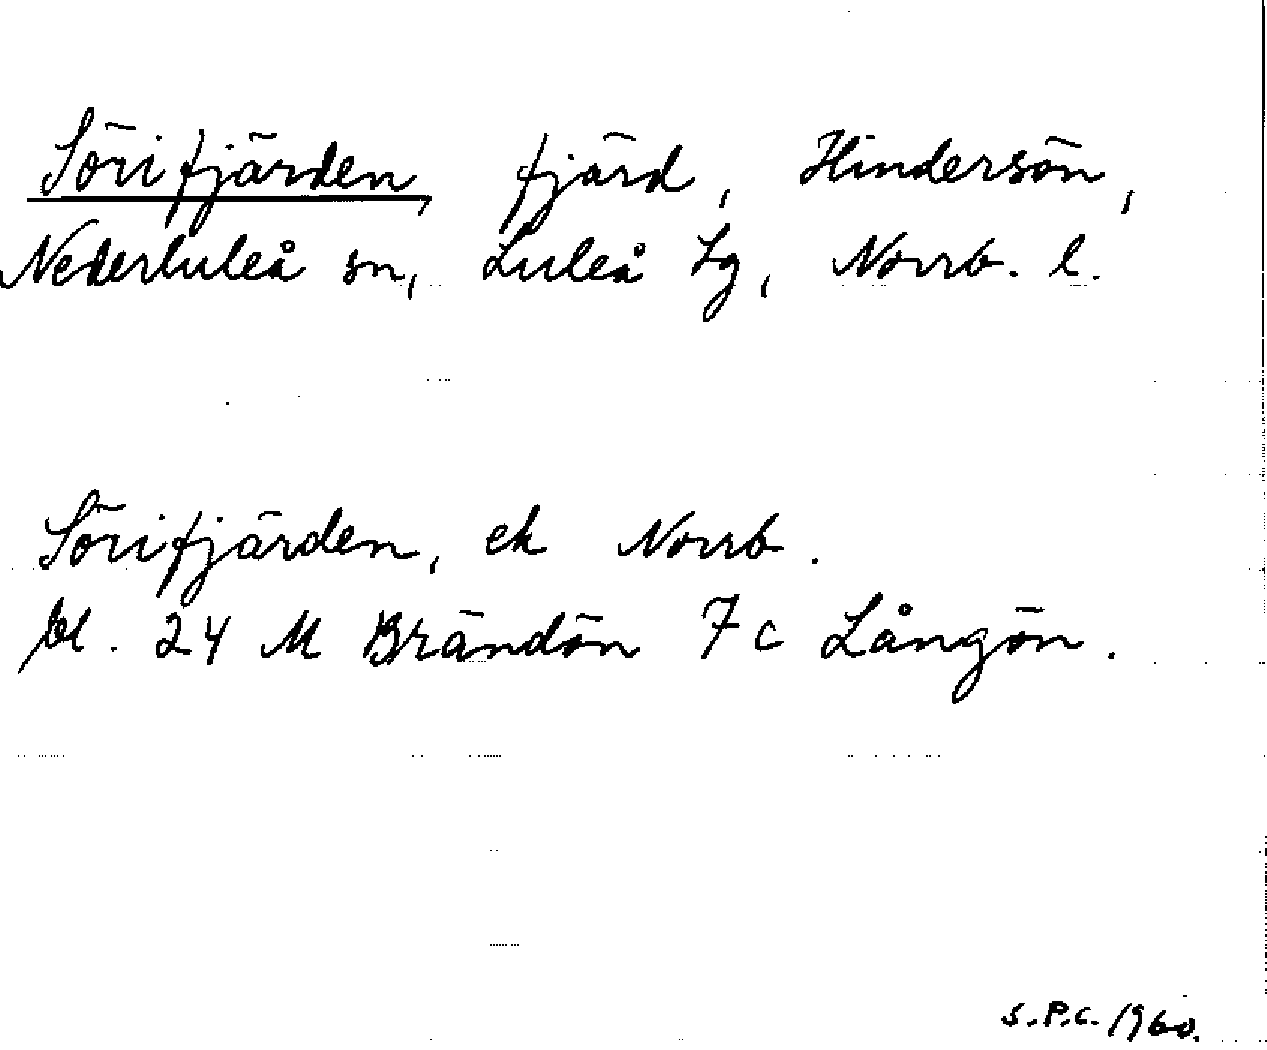 Sörifjärden, fjärd, Hindersön,
Nederluleå sn, Luleå tg, Norrb. l.
Sörifjärden, ek Norrb.
bl. 24 M Brändön 7 c Långön.
S.P.C. 1960.